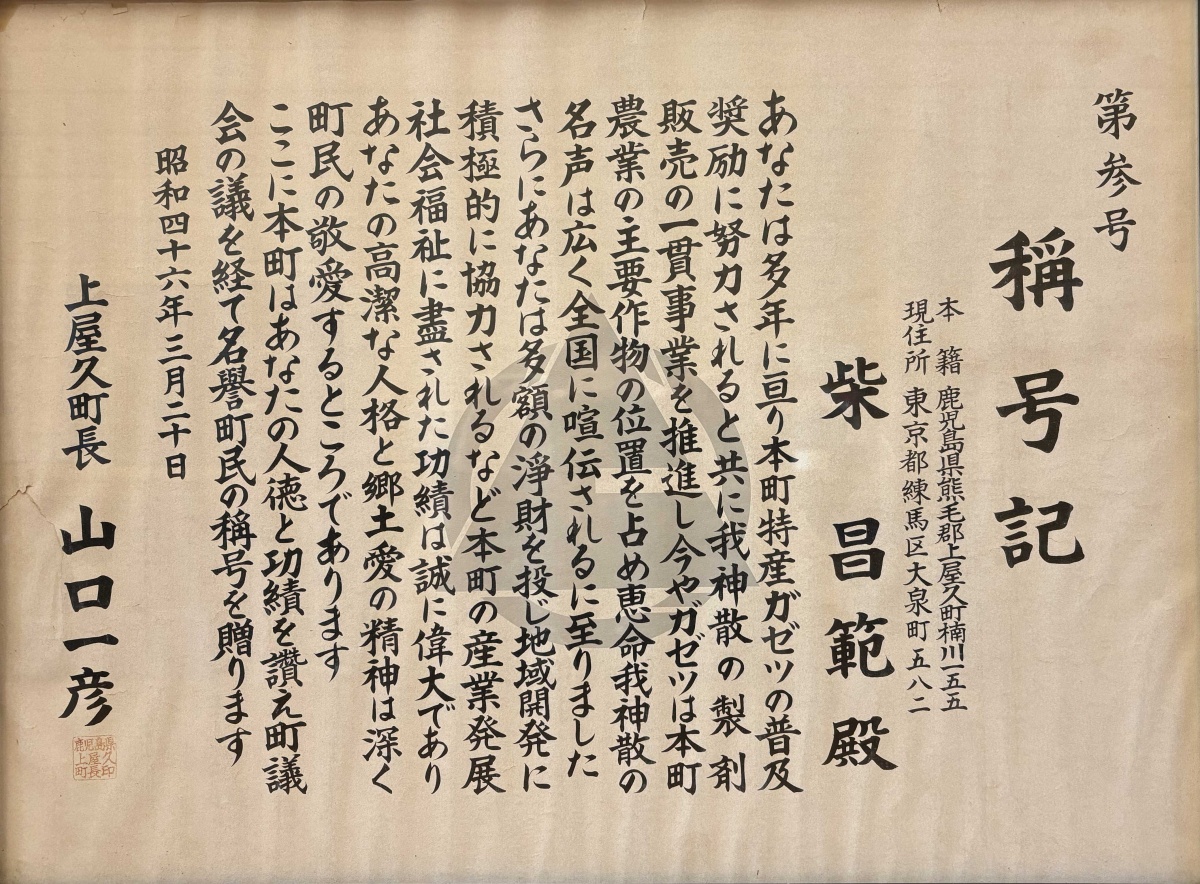 第参号
稱号記
本籍 鹿児島県熊毛郡上屋久町楠川一五五
現住所 東京都練馬区大泉町五八二
柴昌範殿
あなたは多年に亘り本町特産ガゼツの普及
奨励に努力されると共に我神散の製剤
販売の一貫事業を推進し今やガゼツは本町
農業の主要作物の位置を占め恵命我神散の
名声は広く全国に喧伝されるに至りました
さらにあなたは多額の淨財を投じ地域開発に
積極的に協力されるなど本町の産業発展
社会福祉に盡された功績は誠に偉大であり
あなたの高潔な人格と郷土愛の精神は深く
町民の敬愛するところであります
ここに本町はあなたの人徳と功績を讃え町議
会の議を経て名譽町民の稱号を贈ります
昭和四十六年三月二十日
上屋久町長 山口一彦
鹿児島県
上屋久
町長印